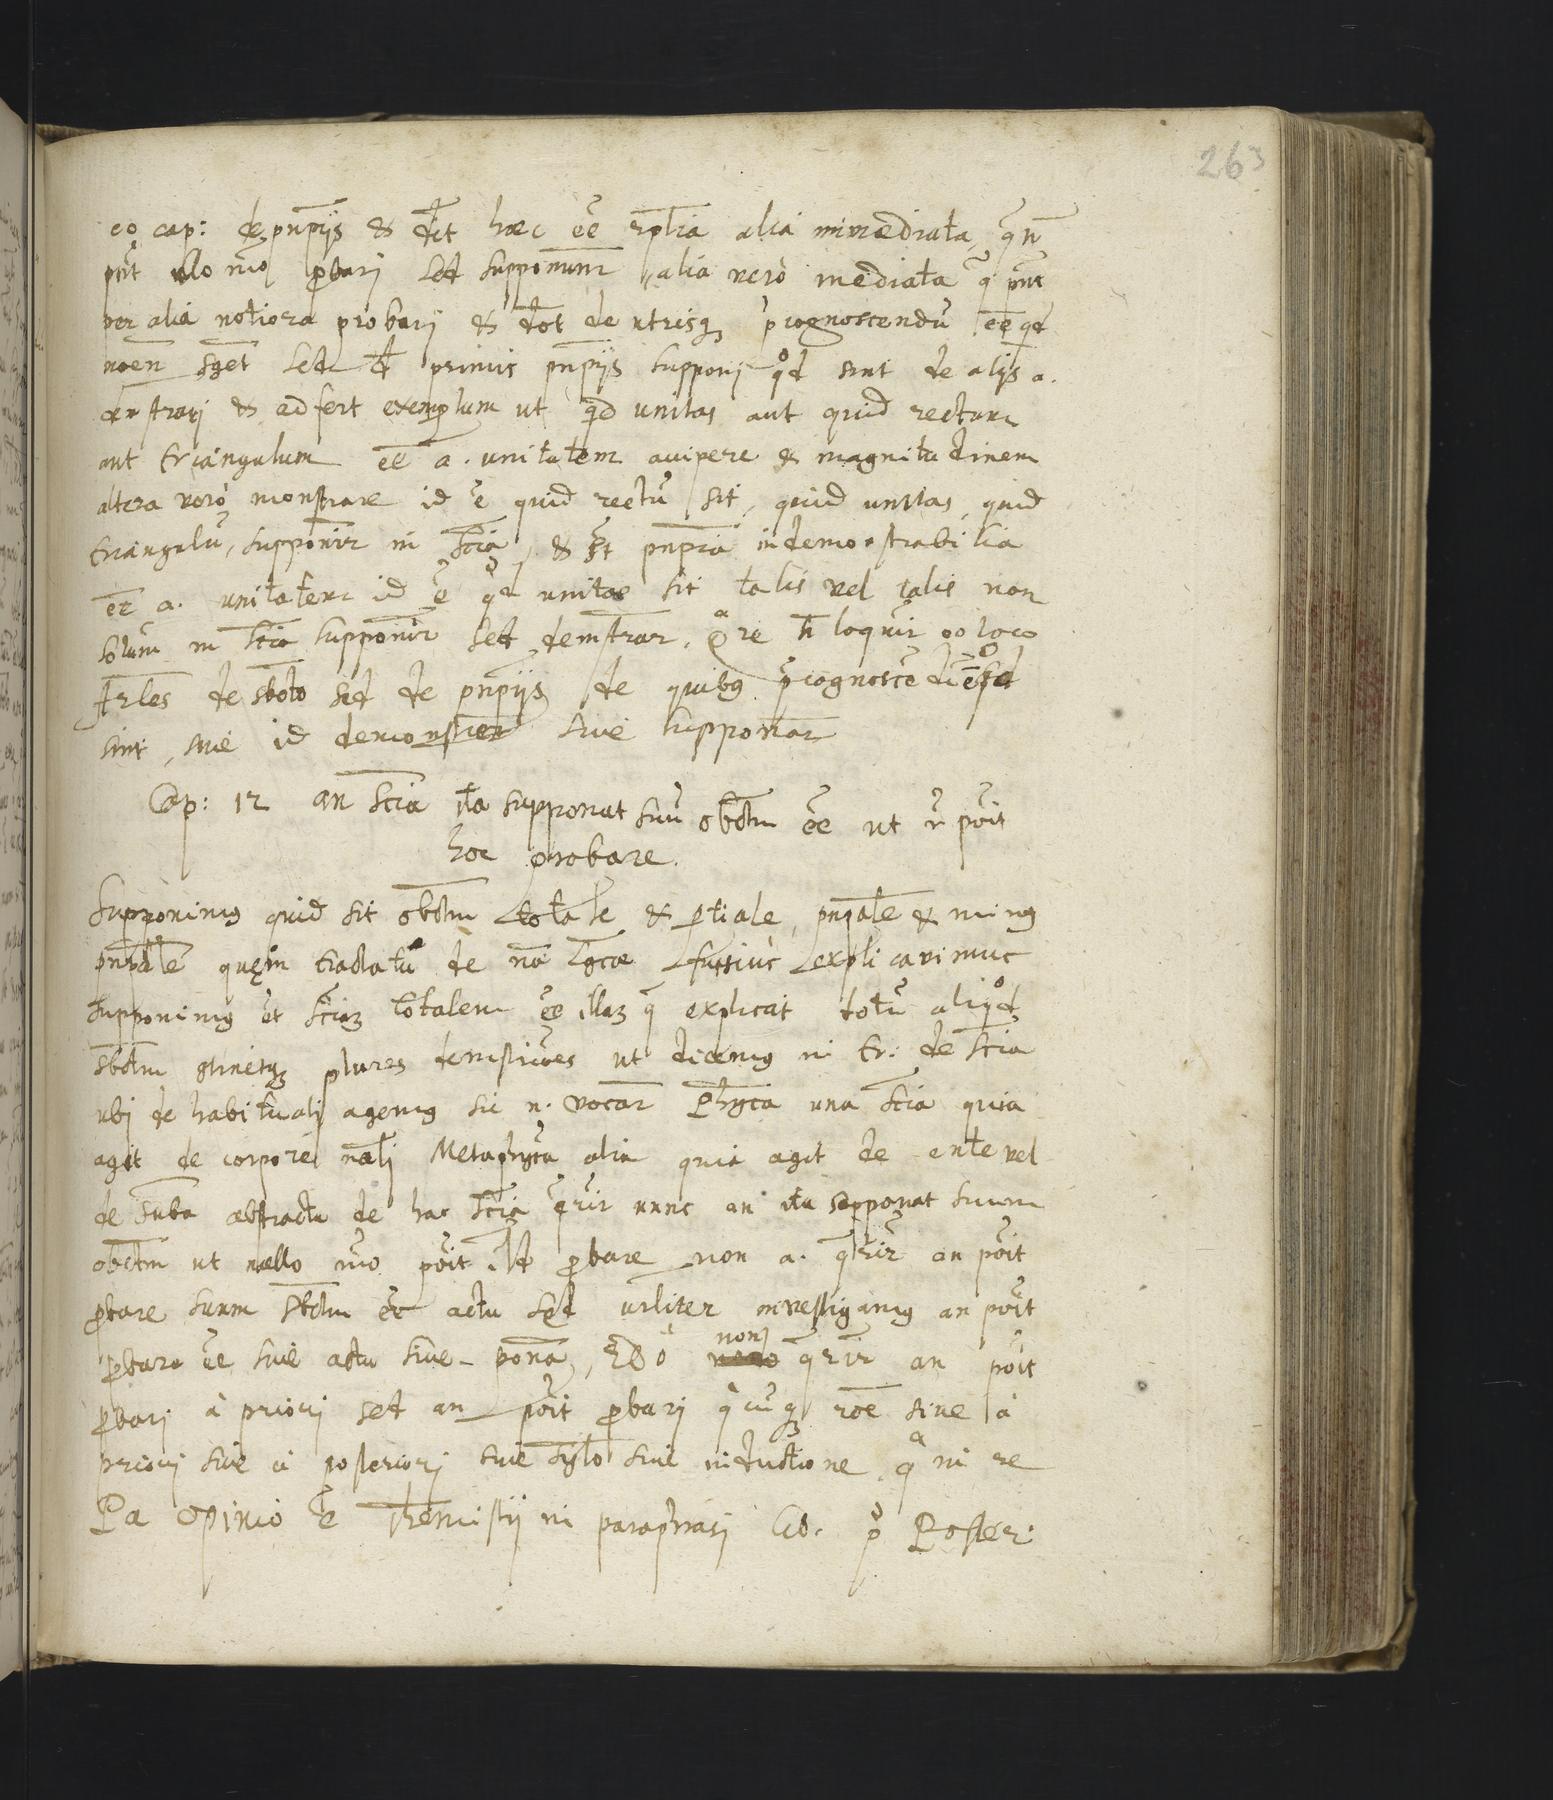 263
eo cap: de pnpijs & dct haec ee alia immediata, q n
pnt ullo mo pbari sed supponunt alia vero mediata q pnt
per alia notiora probari & dot de utrisq pcognoscendu ee qd
noen sget sed d primis pnpijs supponi qd sint de alijs a.
demstrari & adfert exemplum ut qd unitas aut quid rectum
aut triangulum ee a. unitatem accipere & magnitudinem
altera vero monstrare id e quid rectu sit, quid unitas, quid
triangulu, supponir in scia, & st pnpia indemonstrabilia
ee a. unitatem id e qd unitas sit talis vel talis non
solum in scia supponir sed demstrar. Qre n loquir eo loco
Arles de sbcto sed de pnpijs de quibq pcognoscedu e qd
sint, sive id demonstrer sive supponar
Cap: 12 an scia ita supponat suu obctm ee ut n poit
hoc probare.
Supponimq quid sit obctm totale & ptiale, pnpale & minq
pnpale que in tractatu de na Lgcae fusius explicavimus
supponimq et sciaz totalem ee illaz q explicat totu aliqd
sbctm stinetqz plures demstives ut dicemq in tr: de scia
ubi de habituali agemq sic n. vocar Phyca una scia quia
agit de corpore nali Metaphyca alia quia agit de ente vel
de suba abstracta de hac scia qrir nunc an ita supponat suum
obctm ut nullo mo poit illd pbare non a. qrir an poit
pbare suum sbctm ee actu sed urliter investigamq an poit
pbare ee sive actu sive pona, 2do non qrir an poit
pbari à priori sed an poit pbari qcuqz roe sive à
priori sive à posteriori sive sylo sive inductione qa in re
Pa opinio e Themistij in paraphrasi lib. po Poster: